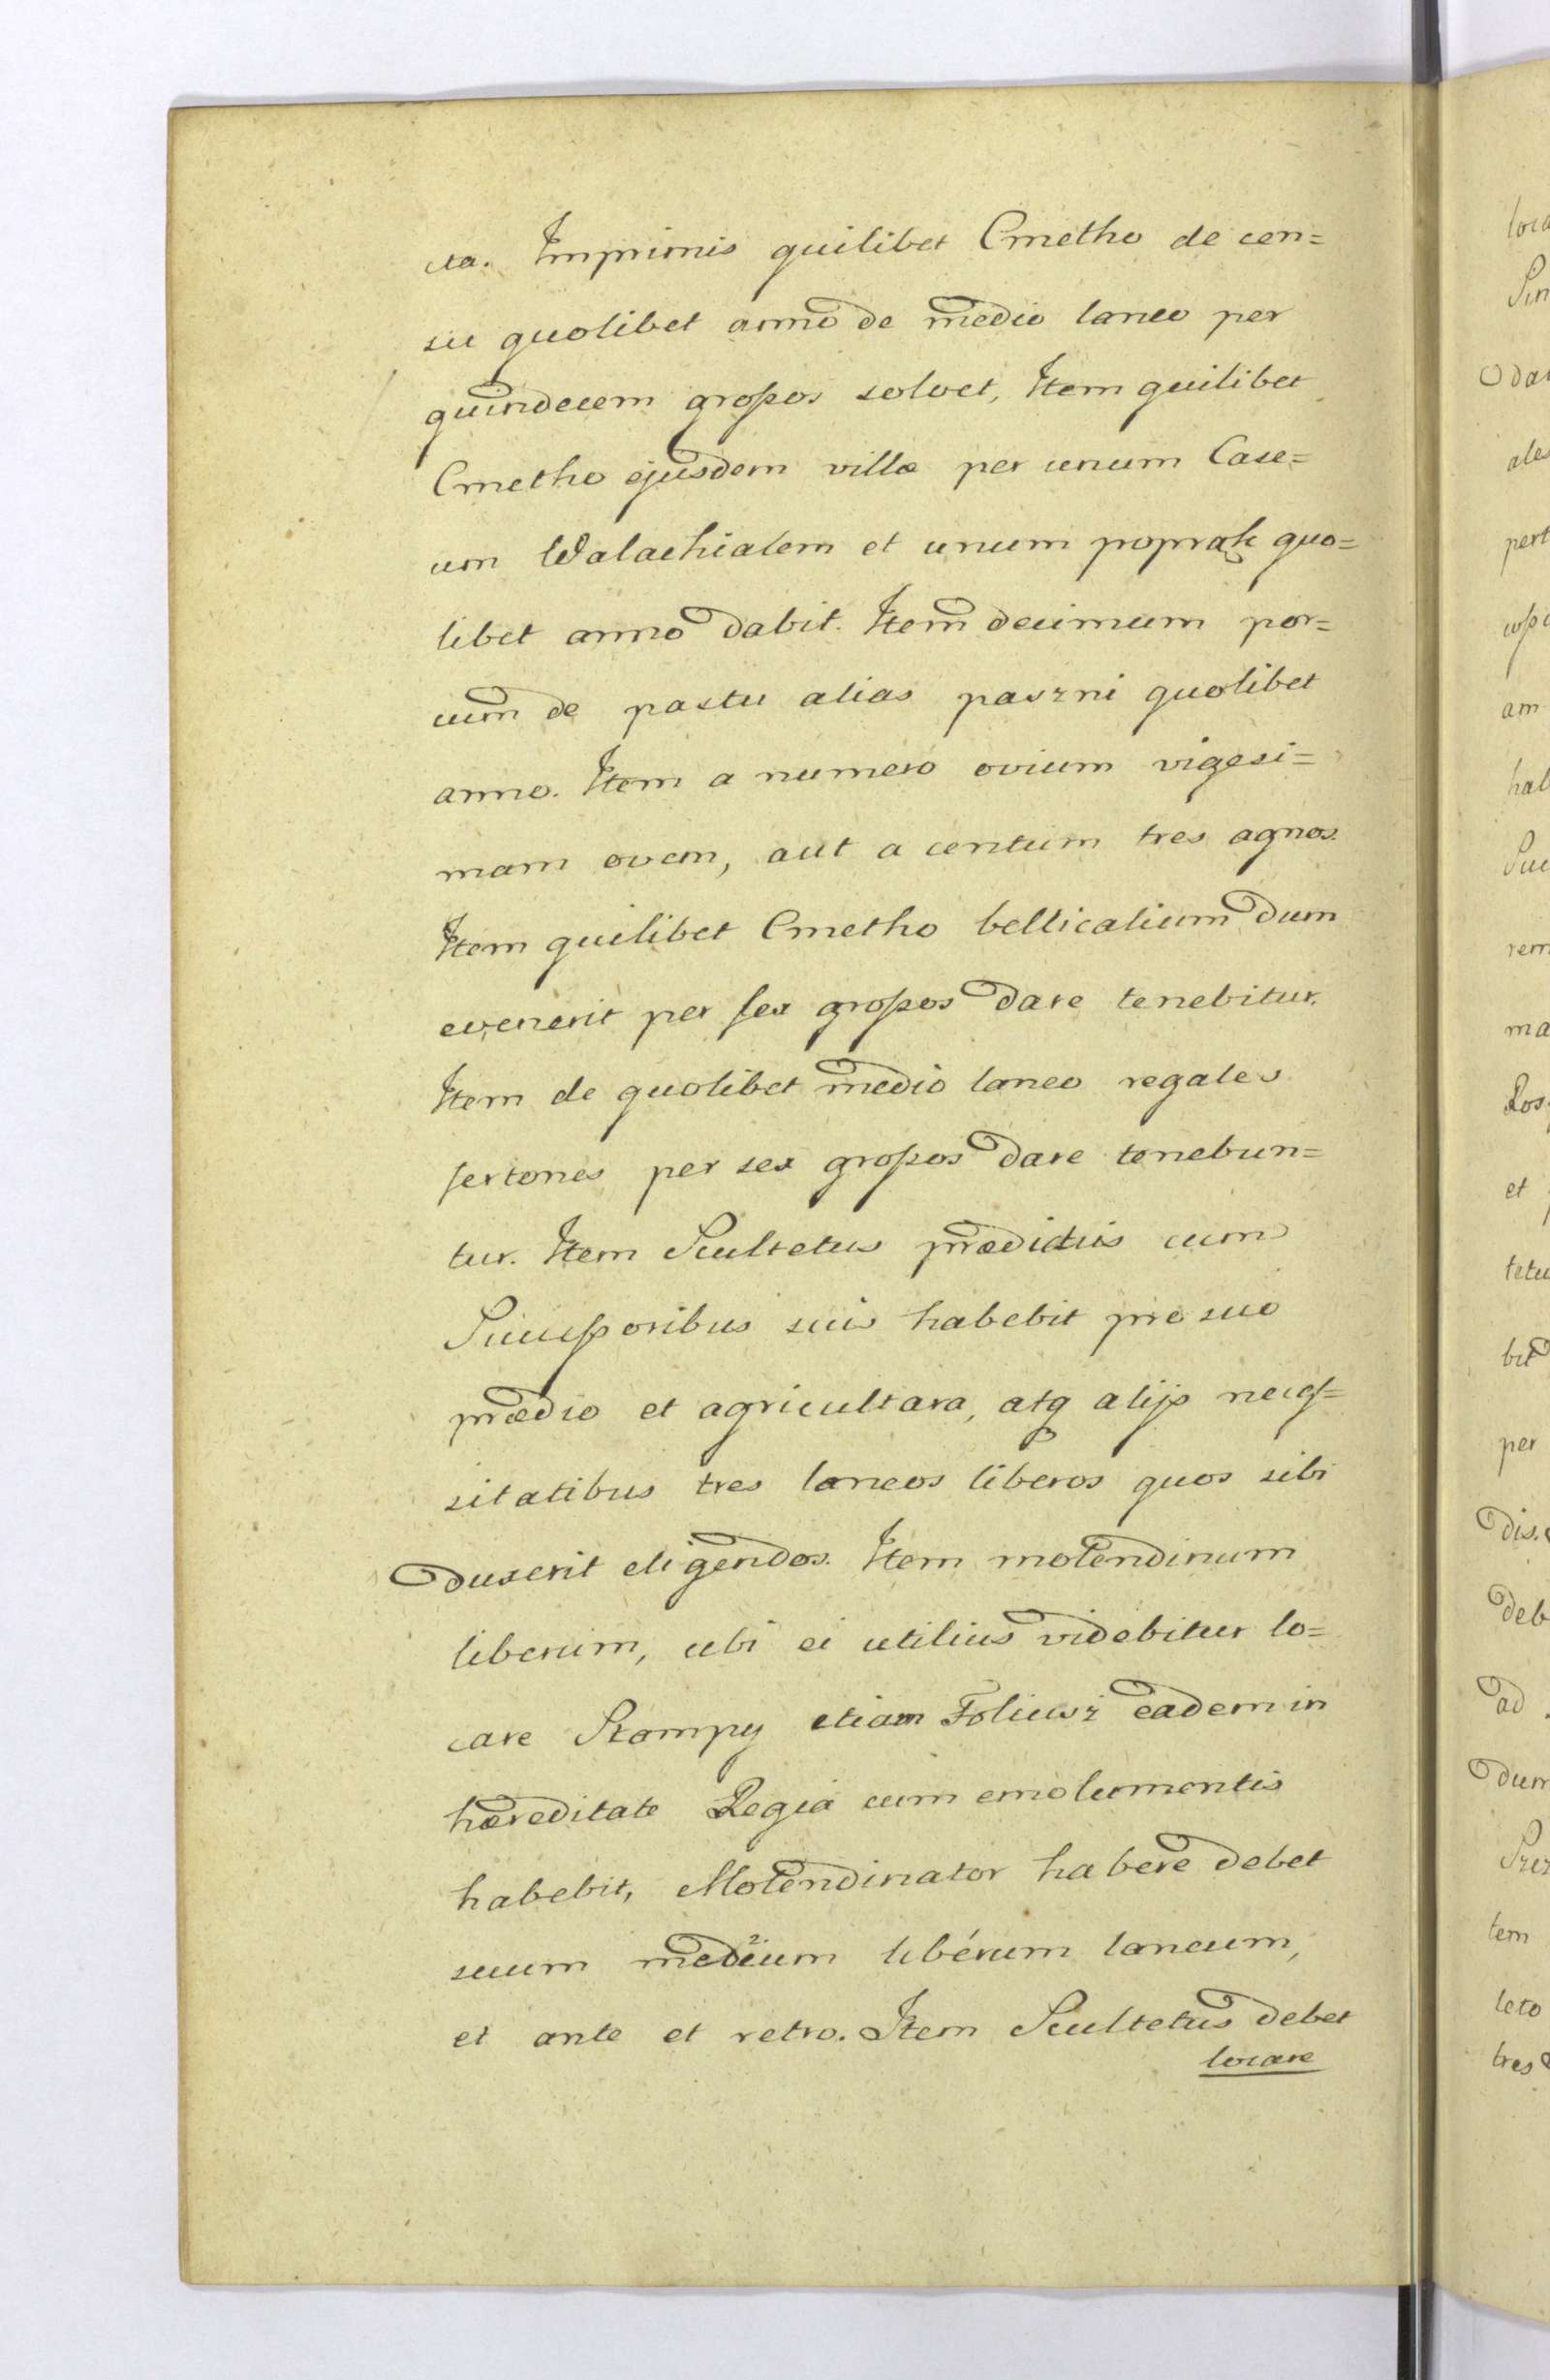 cta. Imprimis quilibet Cmetho de cen=
su quolibet anno de medio laneo per
quindecem grossos solvet, Item quilibet
Cmetho ejusdem villæ per unum Case=
um Walachialem et unum popręk quo=
libet anno dabit. Item decimum por=
cum de pastu alias paszni quolibet
anno. Item a numero ovium vigesi=
mam ovem, aut a centum tres agnos.
Item quilibet Cmetho bellicalium dum
evenerit per sex grossos dare tenebitur.
Item de quolibet medio laneo regales
fertones per sex grossos dare tenebun=
tur. Item Scultetus prædictus cum
Successoribus suis habebit pro suo
prædio et agricultara, atq alijs neces=
sitatibus tres laneos liberos quos sibi
duxerit eligendos. Item molendinum
liberum, ubi ei utilius videbitur lo=
care Stampy etiam Foliusz eadem in
hæreditate Regia cum emolumentis
habebit, Molendinator habere debet
suum medium liberum laneum,
et ante et retro. Item Scultetus debet
locare